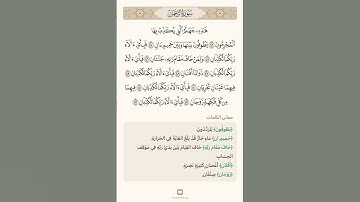 سُورَةُ الرَّحْمَٰن
هَٰذِهِۦ جَهَنَّمُ ٱلَّتِى يُكَذِّبُ بِهَا
ٱلْمُجْرِمُونَ ٤٣ يَطُوفُونَ بَيْنَهَا وَبَيْنَ حَمِيمٍ ءَانٍ ٤٤ فَبِأَىِّ ءَالَآءِ
رَبِّكُمَا تُكَذِّبَانِ ٤٥ وَلِمَنْ خَافَ مَقَامَ رَبِّهِۦ جَنَّتَانِ ٤٦ فَبِأَىِّ ءَالَآءِ
رَبِّكُمَا تُكَذِّبَانِ ٤٧ ذَوَاتَآ أَفْنَانٍ ٤٨ فَبِأَىِّ ءَالَآءِ رَبِّكُمَا تُكَذِّبَانِ ٤٩
فِيهِمَا عَيْنَانِ تَجْرِيَانِ ٥٠ فَبِأَىِّ ءَالَآءِ رَبِّكُمَا تُكَذِّبَانِ ٥١ فِيهِمَا
مِن كُلِّ فَٰكِهَةٍ زَوْجَانِ ٥٢ فَبِأَىِّ ءَالَآءِ رَبِّكُمَا تُكَذِّبَانِ ٥٣
معاني الكلمات:
﴿يَطُوفُونَ﴾ يَتَرَدَّدُونَ
﴿حَمِيمٍ آنٍ﴾ مَاءٍ حَارٍّ قَدْ بَلَغَ الغَايَةَ فِي الحَرَارَةِ.
﴿خَافَ مَقَامَ رَبِّهِ﴾ خَافَ القِيَامَ بَيْنَ يَدَيْ رَبِّهِ فِي مَوْقِفِ
الحِسَابِ.
﴿أَفْنَانٍ﴾ أَغْصَانٍ كَثِيرَةٍ نَضِرَةٍ.
﴿زَوْجَانِ﴾ صِنْفَانِ.